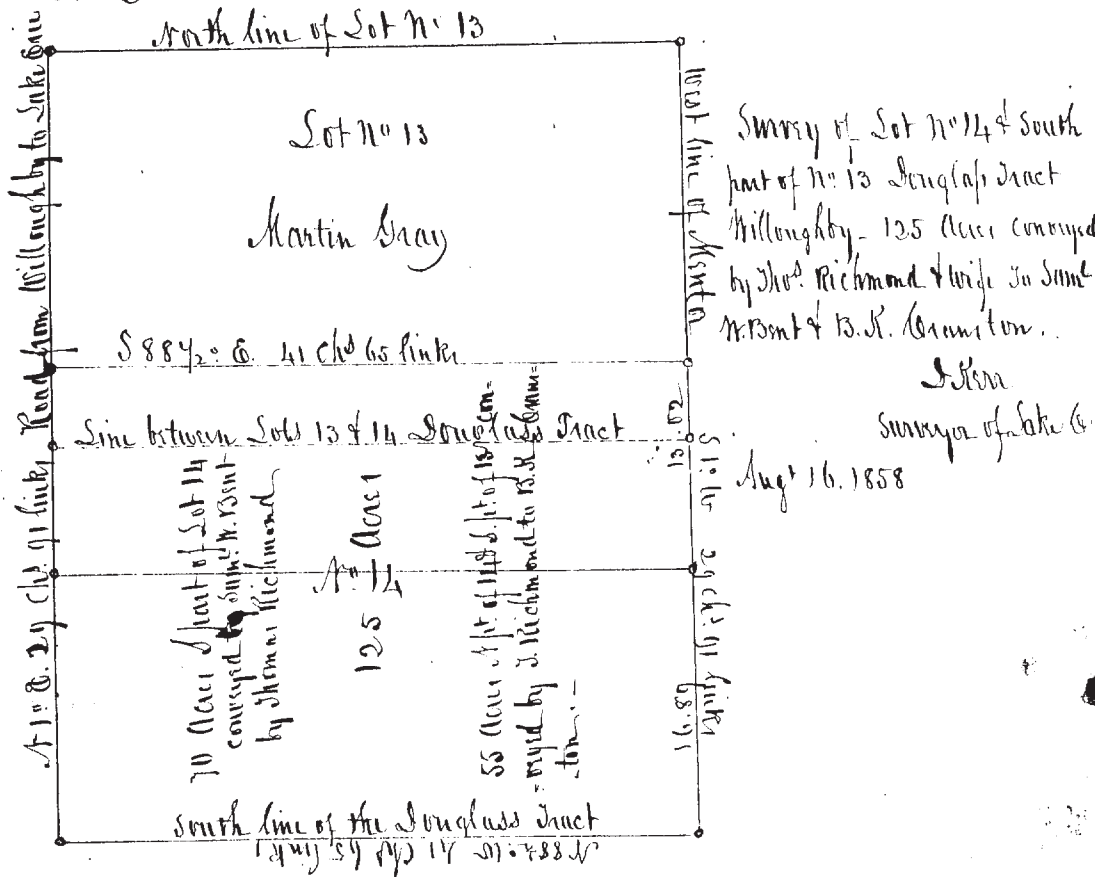 North line of Lot No 13
Road from Willoughby to Lake Erie
N 1° E. 29 Chs. 91 links
Lot No 13
Martin Gray
West line of Mentor
S 88 1/2° E. 41 chs 65 links
Line between Lots 13 & 14 Douglass Tract
13.02
S 1° W 29 chs. 91 links
16.89
70 Acres S part of Lot 14
conveyed to Saml. W. Bent
by Thomas Richmond
No 14
125 Acres
55 Acres N pt of 14 & S. pt of 13 con-
-veyed by T. Richmond to B.K. Crans-
-ton.-
South line of the Douglass Tract
N 88 1/2° W 41 Chs 65 links
Survey of Lot No 14 & South
part of No. 13 Douglass Tract
Willoughby - 125 Acres conveyed
by Thos. Richmond & wife to Saml
W. Bent & B. K. Cranston.
I Kerr
Surveyor of Lake Co.
Augt 16. 1858